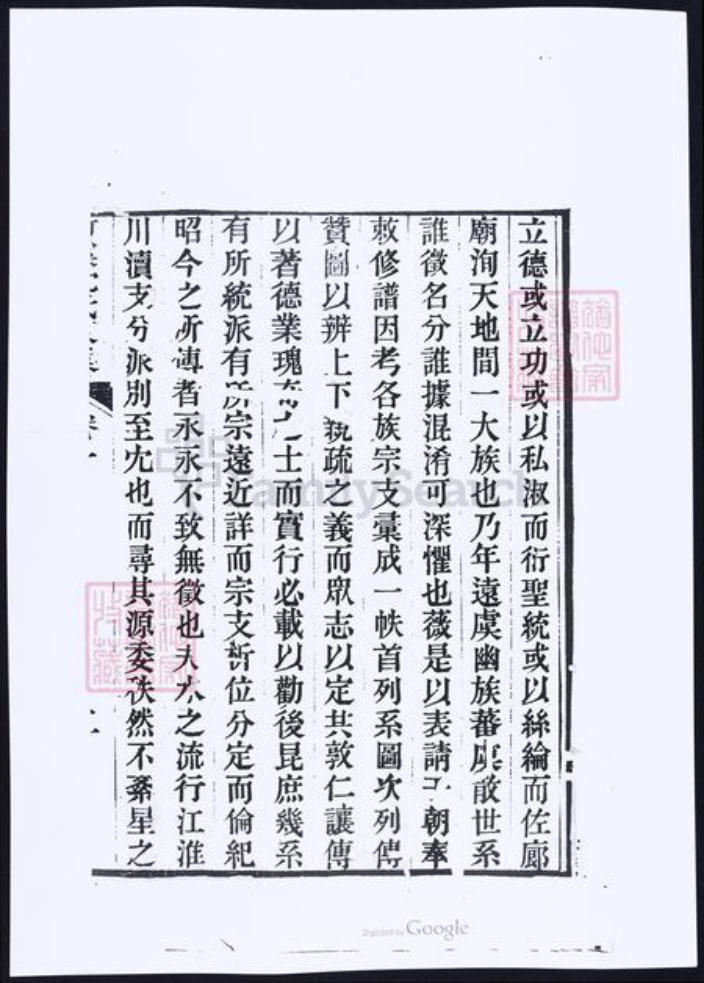 立德或立功或以私淑而衍聖統或以絲綸而佐廊
廟洵天地間一大族也乃年遠虞幽族蕃虞散世系
誰徵名分誰據混淆可深懼也薇是以表請于朝奉
敕修譜因考各族宗支彙成一帙首列系圖次列傳
贊圖以辨上下親疏之義而眾志以定共敦仁讓傳
以著德業瑰奇之士而實行必載以勸後昆庶幾系
有所統派有所宗遠近詳而宗支析位分定而倫紀
昭今之所傳者永永不致無徵也夫水之流行江淮
川瀆支分派別至尤也而尋其源委秩然不紊星之
FamilySearch
Digitized by Google